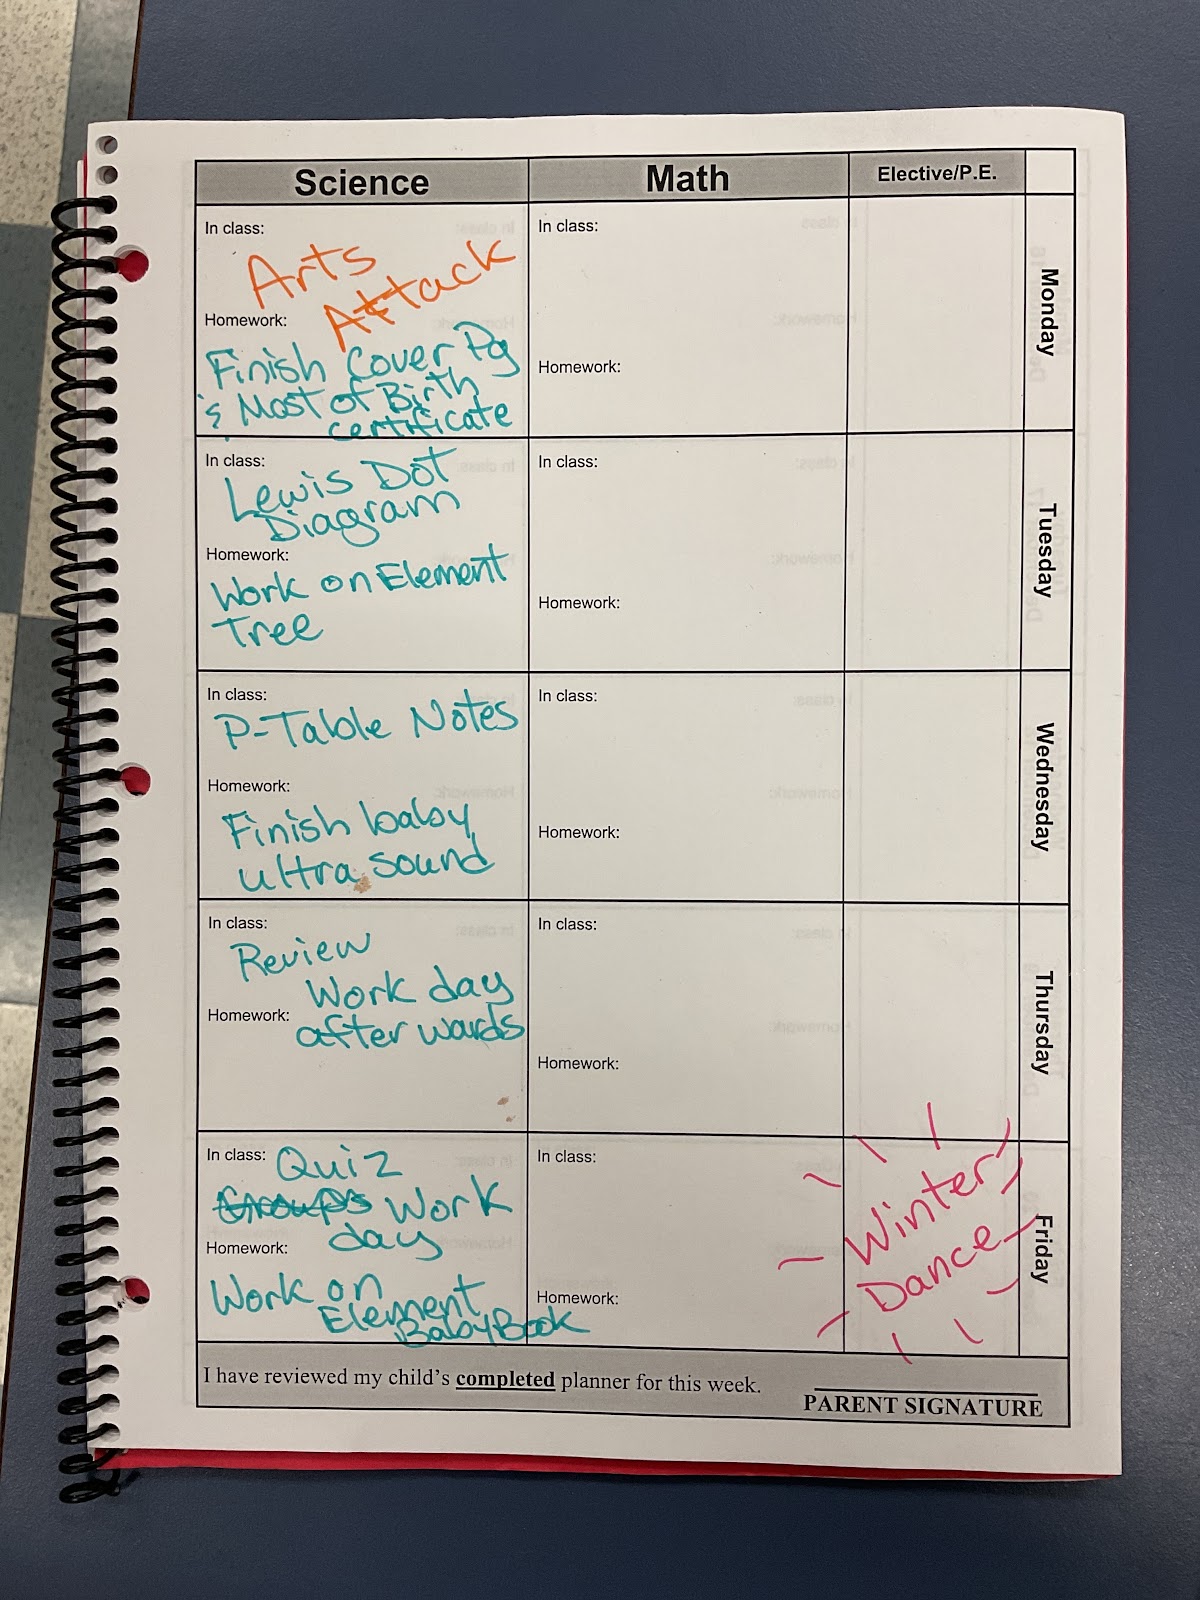 Science
Math
Elective/P.E.
In class:
Arts
Attack
Homework:
Finish Cover Pg
& Most of Birth
certificate
In class:
Homework:
Monday
In class:
Lewis Dot
Diagram
Homework:
Work on Element
Tree
In class:
Homework:
Tuesday
In class:
P-Table Notes
Homework:
Finish baby
ultra sound
In class:
Homework:
Wednesday
In class:
Review
Work day
after wards
Homework:
In class:
Homework:
Thursday
In class:
Quiz
Groups Work
day
Homework:
Work on
Element
Baby Book
In class:
Homework:
Winter
Dance
Friday
I have reviewed my child's completed planner for this week.
PARENT SIGNATURE